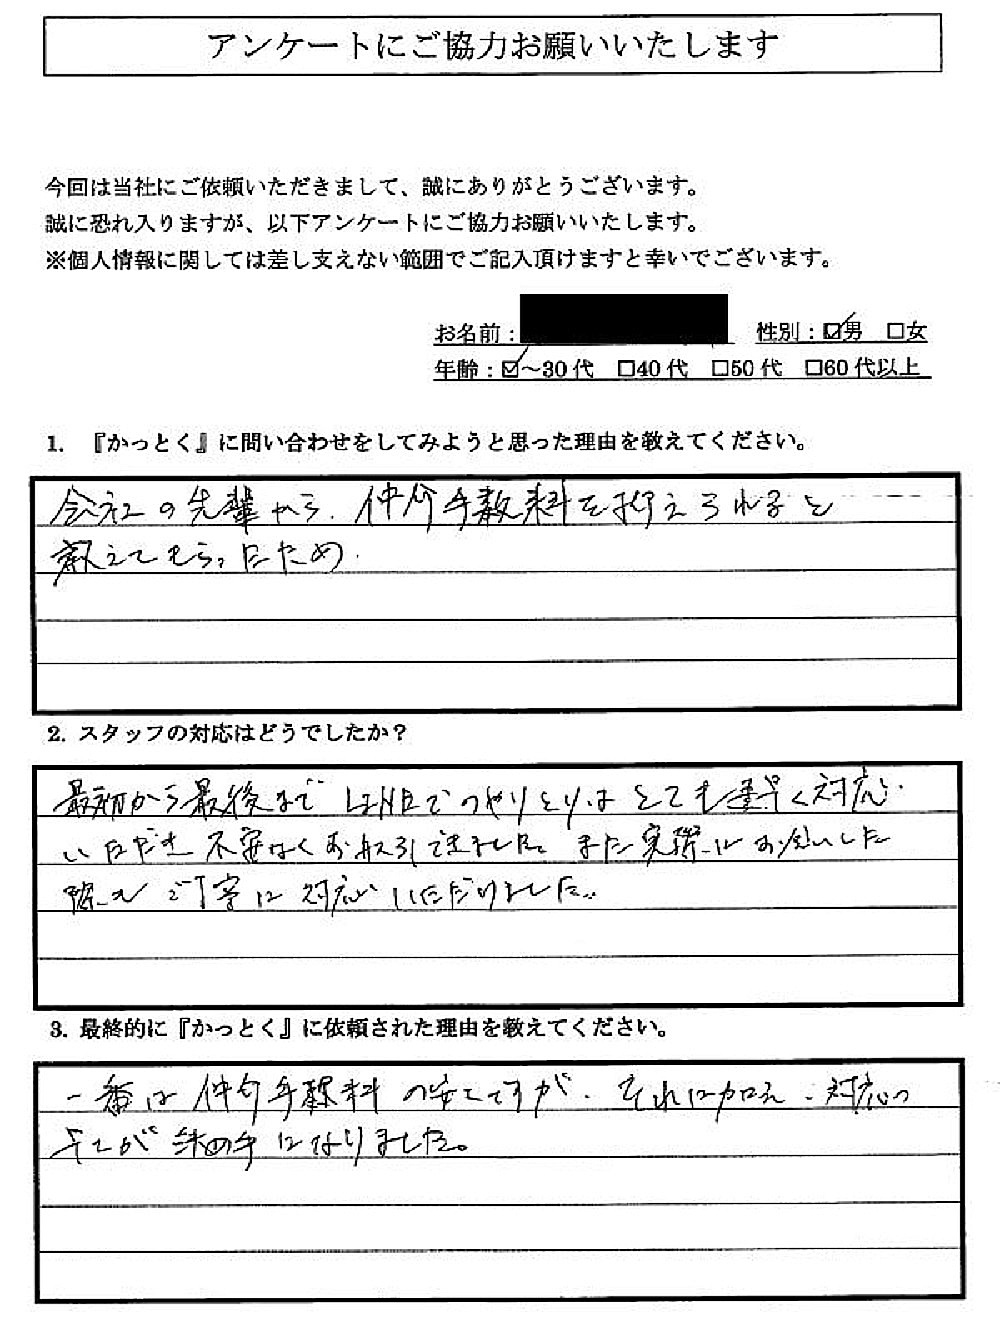 アンケートにご協力お願いいたします
今回は当社にご依頼いただきまして、誠にありがとうございます。
誠に恐れ入りますが、以下アンケートにご協力お願いいたします。
※個人情報に関しては差し支えない範囲でご記入頂けますと幸いでございます。
お名前： 性別：☑男 □女
年齢：☑～30代 □40代 □50代 □60代以上
1. 『かっとく』に問い合わせをしてみようと思った理由を教えてください。
会社の先輩から、仲介手数料を抑えられると
教えてもらったため.
2. スタッフの対応はどうでしたか？
最初から最後まで LINEでのやりとりはとても素早く対応
いただき 不安なくお取引できました。また実際にお会いした
際も ご丁寧に対応いただけました。
3. 最終的に『かっとく』に依頼された理由を教えてください。
一番は仲介手数料の安さですが、それに加え、対応の
早さが決め手になりました。